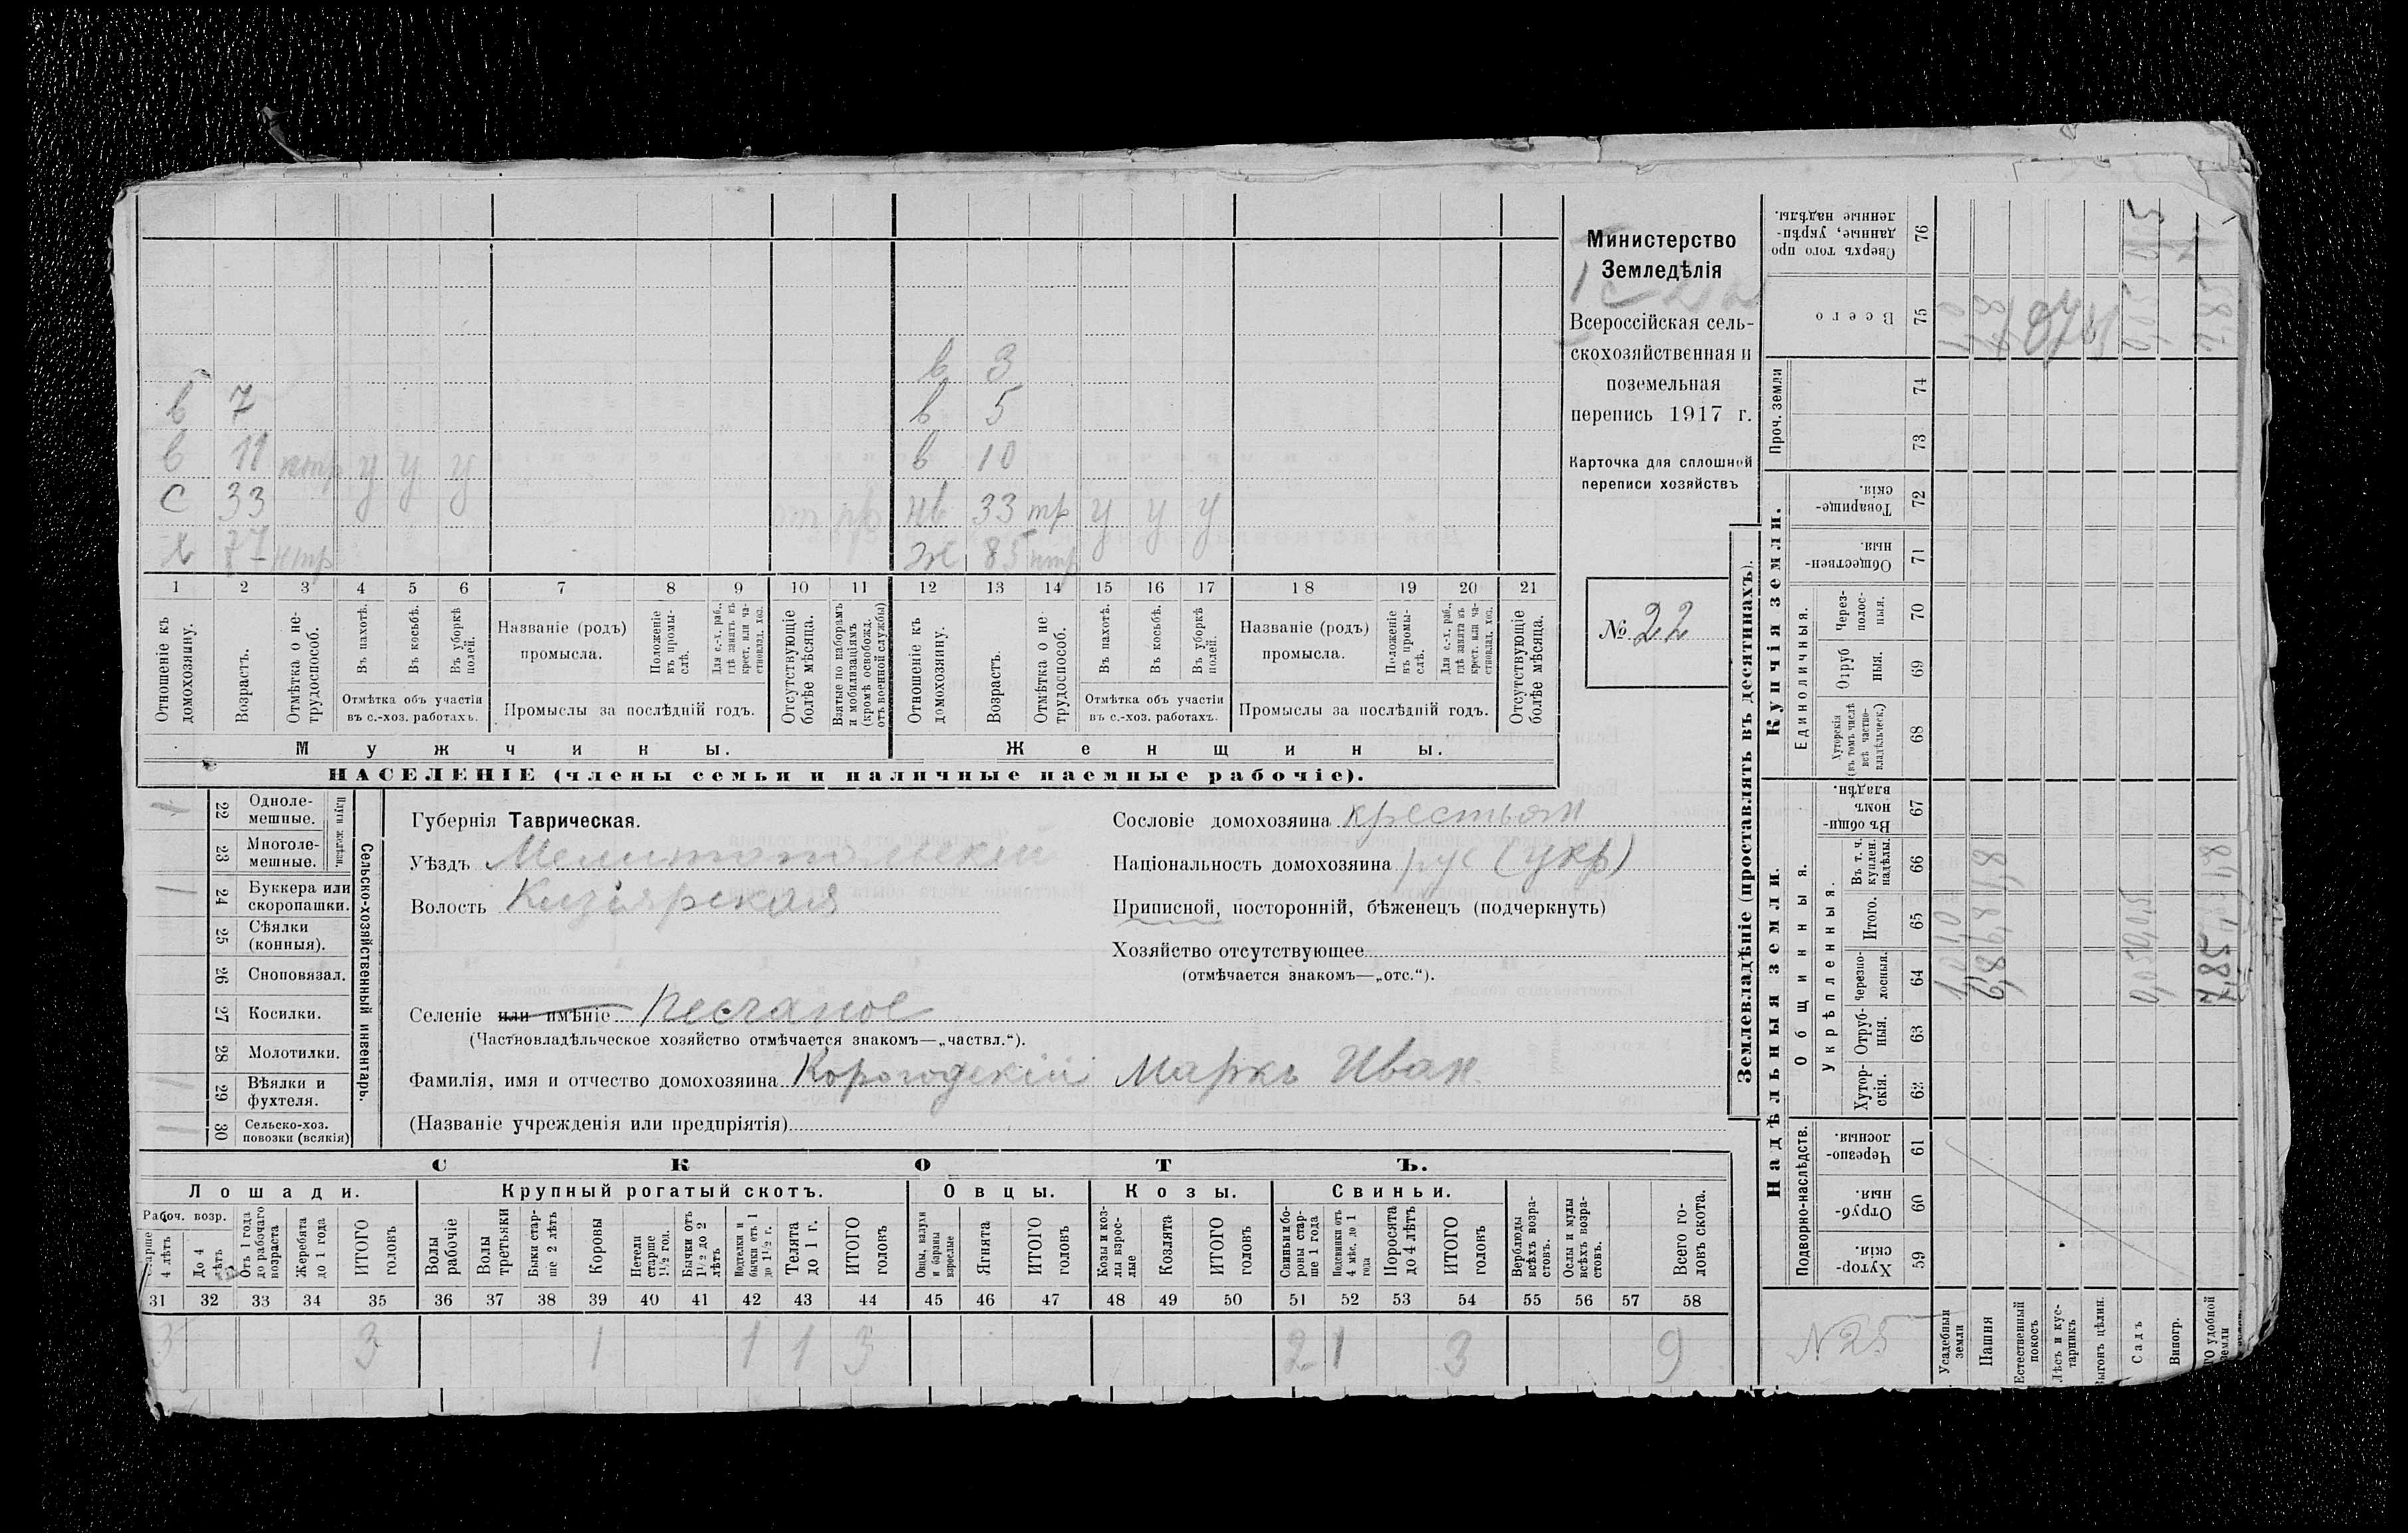 в 3
в 7 в 5
в 11 в 10
с 33 нтр у у у нв 33 тр у у у
х 77 нтр ж 85 нтр
1 2 3 4 5 6 7 8 9 10 11 12 13 14 15 16 17 18 19 20 21
Отношеніе къ домохозяину.
Возрастъ.
Отмѣтка о нетрудоспособ.
Въ пахотѣ.
Въ косьбѣ.
Въ уборкѣ полей.
Отмѣтка объ участіи
въ с.-хоз. работахъ.
Названіе (родъ)
промысла.
Положеніе въ промыслѣ.
Для с.-х. раб., гдѣ занятъ въ крест. или частновлад. хоз.
Промыслы за послѣдній годъ.
Отсутствующіе болѣе мѣсяца.
Взятые по наборамъ и мобилизаціямъ (кромѣ освобожд. отъ военной службы)
Отношеніе къ домохозяину.
Возрастъ.
Отмѣтка о нетрудоспособ.
Въ пахотѣ.
Въ косьбѣ.
Въ уборкѣ полей.
Отмѣтка объ участіи
въ с.-хоз. работахъ.
Названіе (родъ)
промысла.
Положеніе въ промыслѣ.
Для с.-х. раб., гдѣ занята въ крест. или частновлад. хоз.
Промыслы за послѣдній годъ.
Отсутствующіе болѣе мѣсяца.
Мужчины. Женщины.
НАСЕЛЕНІЕ (члены семьи и наличные наемные рабочіе).
Министерство
Земледѣлія
Всероссійская сель-
скохозяйственная и
поземельная
перепись 1917 г.
Карточка для сплошной
переписи хозяйствъ
№ 22
22 Одноле-
мешные.
23 Многоле-
мешные.
Плуги желѣзн.
24 Буккера или
скоропашки.
25 Сѣялки
(конныя).
26 Сноповязал.
27 Косилки.
28 Молотилки.
29 Вѣялки и
фухтеля.
30 Сельско-хоз.
повозки (всякія)
Сельско-хозяйственный инвентарь.
Губернія Таврическая.
Уѣздъ Мелитопольскій
Волость Кизіярская
Селеніе или имѣніе Песчаное
(Частновладѣльческое хозяйство отмѣчается знакомъ—„частвл.“).
Фамилія, имя и отчество домохозяина Корогодскій Маркъ Иван.
(Названіе учрежденія или предпріятія)
Сословіе домохозяина крестьян
Національность домохозяина рус (укр)
Приписной, посторонній, бѣженецъ (подчеркнуть)
Хозяйство отсутствующее
(отмѣчается знакомъ—„отс.“).
СКОТЪ.
Лошади. Крупный рогатый скотъ. Овцы. Козы. Свиньи.
Рабоч. возр.
Старше 4 лѣтъ
До 4 лѣтъ
Отъ 1 года до рабочаго возраста
Жеребята до 1 года
ИТОГО головъ
Волы рабочіе
Волы третьяки
Быки старше 2 лѣтъ
Коровы
Нетели старше 1½ год.
Бычки отъ 1½ до 2 лѣтъ
Подтелки и бычки отъ 1 до 1½ г.
Телята до 1 г.
ИТОГО головъ
Овцы, валухи и бараны взрослые
Ягнята
ИТОГО головъ
Козы и козлы взрослые
Козлята
ИТОГО головъ
Свиньи и боровы старше 1 года
Подсвинки отъ 4 мѣс. до 1 года
Поросята до 4 лѣтъ
ИТОГО головъ
Верблюды всѣхъ возрастовъ.
Ослы и мулы всѣхъ возрастовъ.
Всего головъ скота.
31 32 33 34 35 36 37 38 39 40 41 42 43 44 45 46 47 48 49 50 51 52 53 54 55 56 57 58
3 3 1 1 1 3 2 1 3 9
Землевладѣніе (проставлять въ десятинахъ).
Надѣльныя земли. Купчія земли.
Подворно-наслѣдств.
Общинныя.
Укрѣпленныя.
Единоличныя.
Проч. земли
Хуторскія. 59
Отрубныя. 60
Черезполосныя. 61
Хуторскія. 62
Отрубныя. 63
Черезполосныя. 64
Итого. 65
Въ т. ч. куплен. надѣлы. 66
Въ общинномъ владѣн. 67
Хуторскія (въ томъ числѣ всѣ частновладѣльческ.) 68
Отрубныя. 69
Черезполосныя. 70
Общественныя. 71
Товарищескія. 72
73
74
Всего 75
Сверхъ того проданные, укрѣпленные надѣлы. 76
N 25
Усадебныя земли
Пашня
Естественный покосъ
Лѣсъ и кустарникъ
Выгонъ цѣлин.
Садъ
Виногр.